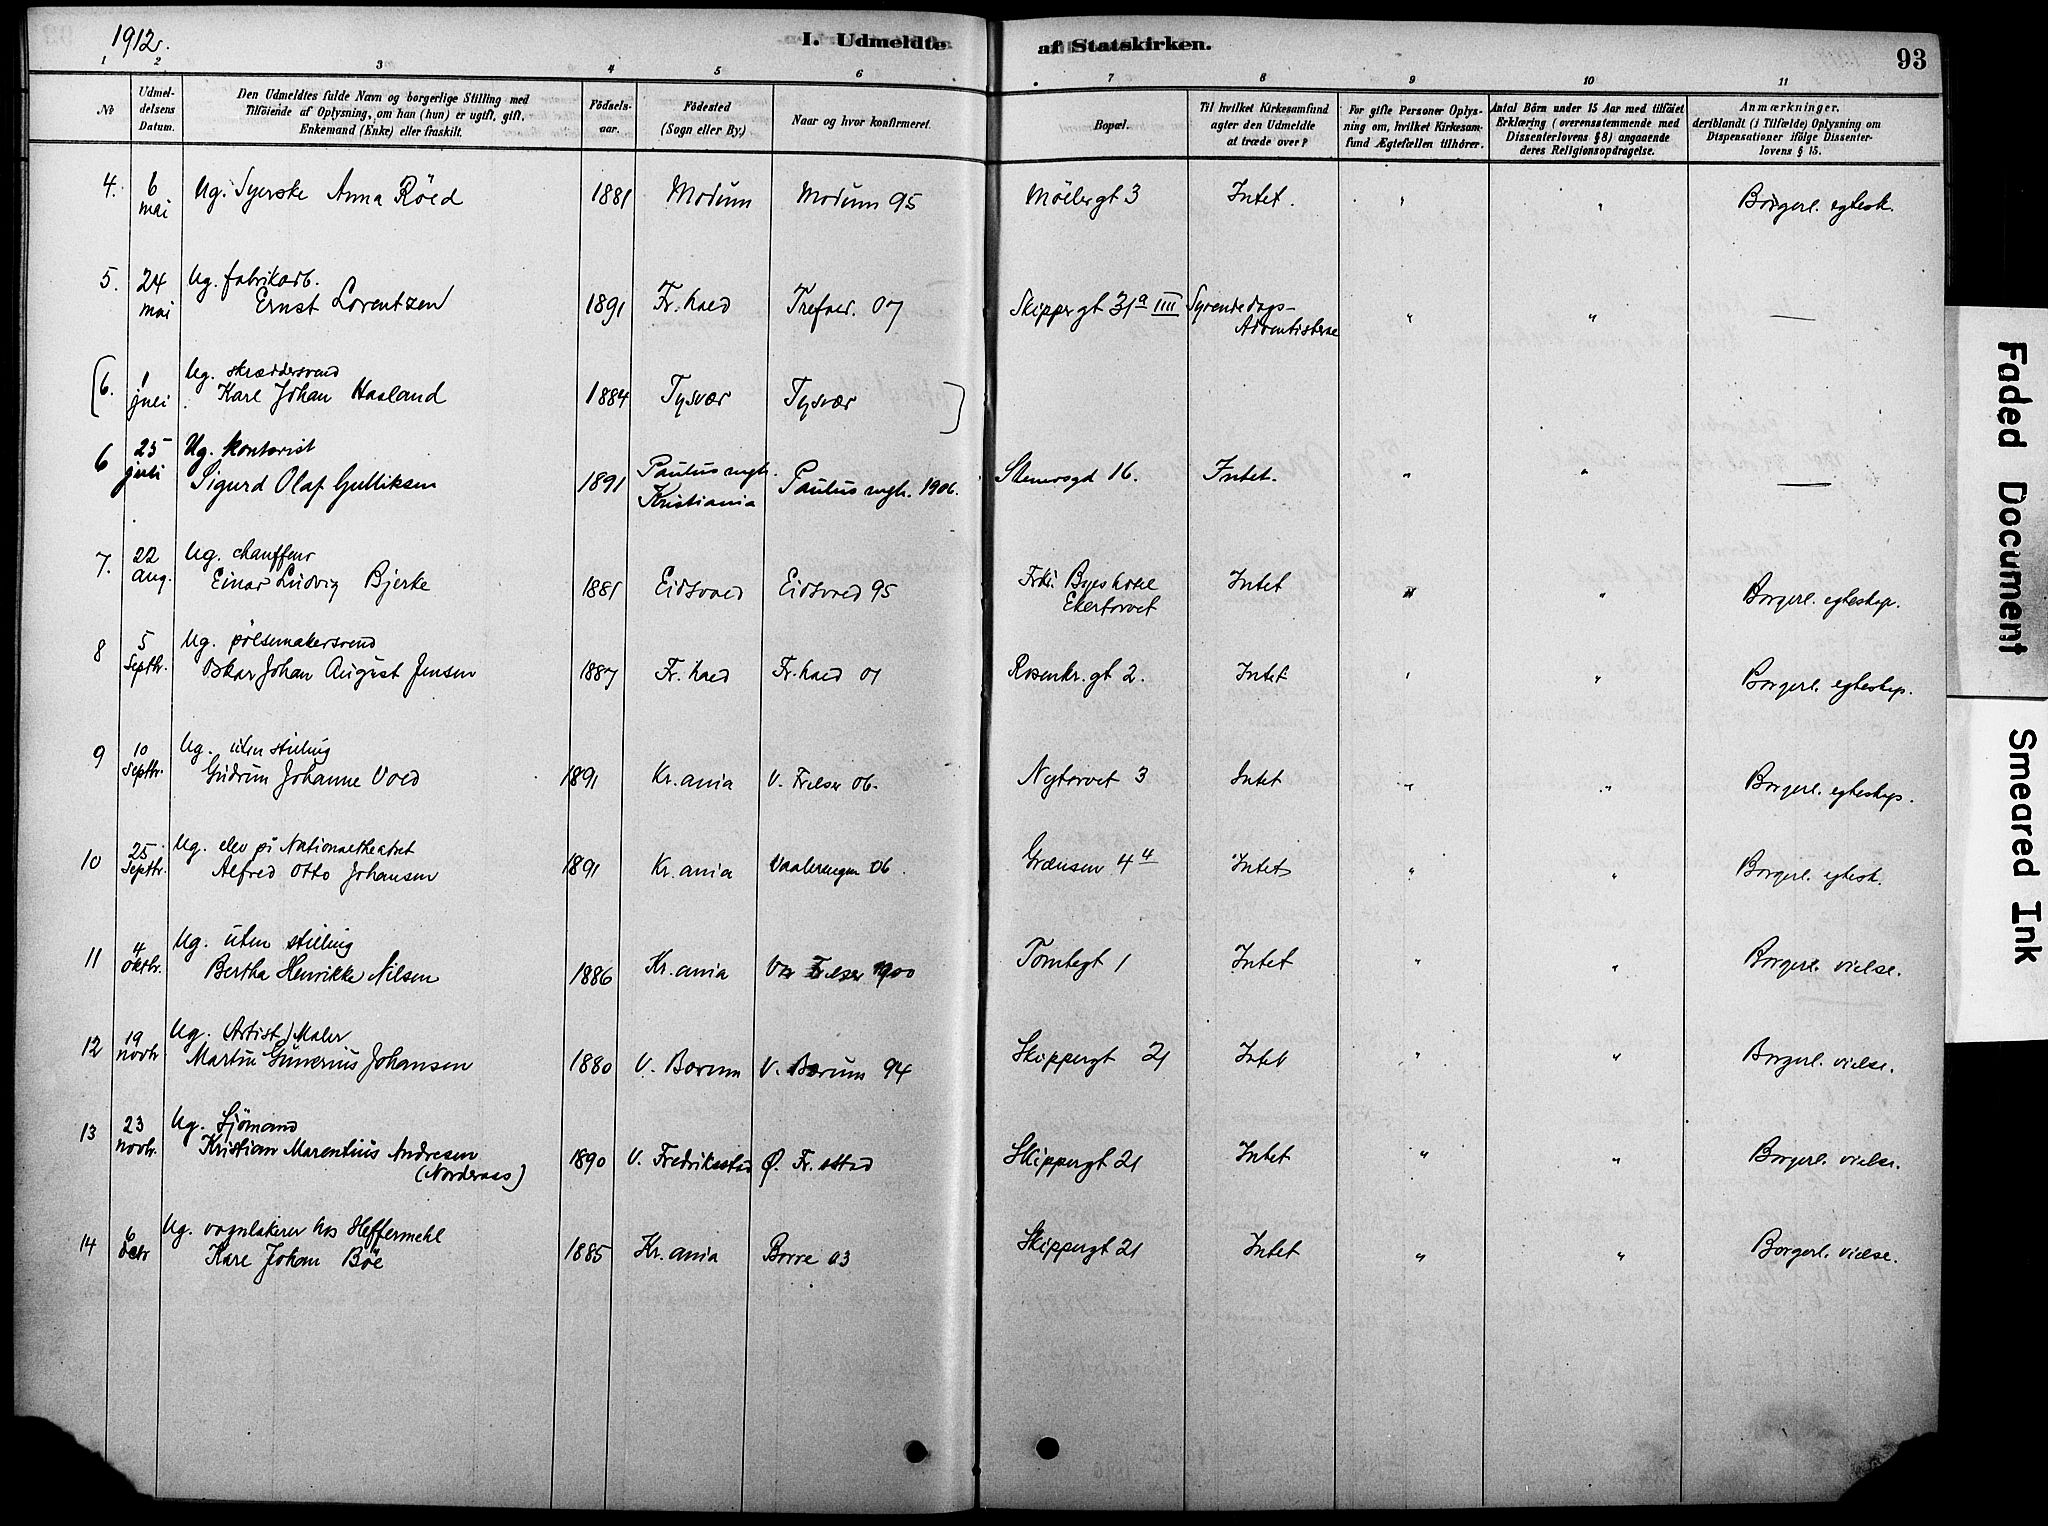 1912.
I. Udmeldte af Statskirken.
93
1 2 3 4 5 6 7 8 9 10 11
No
Udmeldelsens Datum.
Den Udmeldtes fulde Navn og borgerlige Stilling med
Tilföiende af Oplysning, om han (hun) er ugift, gift,
Enkemand (Enke) eller fraskilt.
Födselsaar.
Födested
(Sogn eller By.)
Naar og hvor konfirmeret.
Bopæl.
Til hvilket Kirkesamfund
agter den Udmeldte
at træde over?
For gifte Personer Oplysning om, hvilket Kirkesamfund Ægtefællen tilhörer.
Antal Börn under 15 Aar med tilföiet
Erklæring (overensstemmende med
Dissenterlovens § 8) angaaende
deres Religionsopdragelse.
Anmærkninger,
deriblandt (i Tilfælde) Oplysning om
Dispensationer ifölge Dissenterlovens § 15.
4. 6 mai Ug. Syerske Anna Röed 1881 Modum Modum 95 Möllergt 3 Intet. " " Borgerl. egtesk.
5. 24 mai Ug. fabrikarb.
Ernst Lorentzen 1891 Fr.hald Trefold. 07 Skippergt 31a IIII Syvendedags-
Adventisterne " " —
(6. 1 juli Ug. skræddersvend
Karl Johan Hasland 1884 Tysvær Tysvær )
6 25 juli Ug. kontorist
Sigurd Olaf Gulliksen 1891 Paulus mgh.
Kristiania Paulus mgh. 1906. Stenersgd 16. Intet. " " —
7. 22 aug. Ug. chauffeur
Einar Ludvig Bjerke 1881 Eidsvold Eidsvold 95 Frk. Byes hotel
Egertorvet Intet " " Borgerl. egteskap.
8 5 Septbr. Ug. pölsemakersvend
Oskar Johan August Jensen 1887 Fr.hald Fr.hald 01 Rosenkr.gt 2. Intet " " Borgerl. egteskap.
9 10 Septbr. Ug. uten stilling
Gudrun Johanne Vold 1891 Kr.ania V. Frelser 06. Nytorvet 3 Intet " " Borgerl. egteskap.
10 25 Septbr. Ug. elev på Nationaltheatret
Alfred Otto Johansen 1891 Kr.ania Vaalerengen 06. Grænsen 4 4 Intet " " Borgerl. egtesk.
11 4 oktbr. Ug. uten stilling
Bertha Henrikke Nilsen 1886 Kr.ania Vor Frelser 1900 Tomtegt 1 Intet " " Borgerl. vielse.
12 19 novbr Ug. (Artist) Maler
Martin Gunerius Johansen 1880 V. Bærum V. Bærum 94 Skippergt 21 Intet " " Borgerl. vielse.
13 23 novbr. Ug. Sjömand
Kristian Marentius Andresen
(Norderaas) 1890 V. Fredrikstad Ø. Fr.stad Skippergt 21 Intet " " Borgerl. vielse.
14 6 decbr Ug. vognlakerer hos Heffermehl
Karl Johan Böe 1885 Kr.ania Borre 03 Skippergt 21 Intet " " Borgerl. vielse.
Faded Document
Smeared Ink